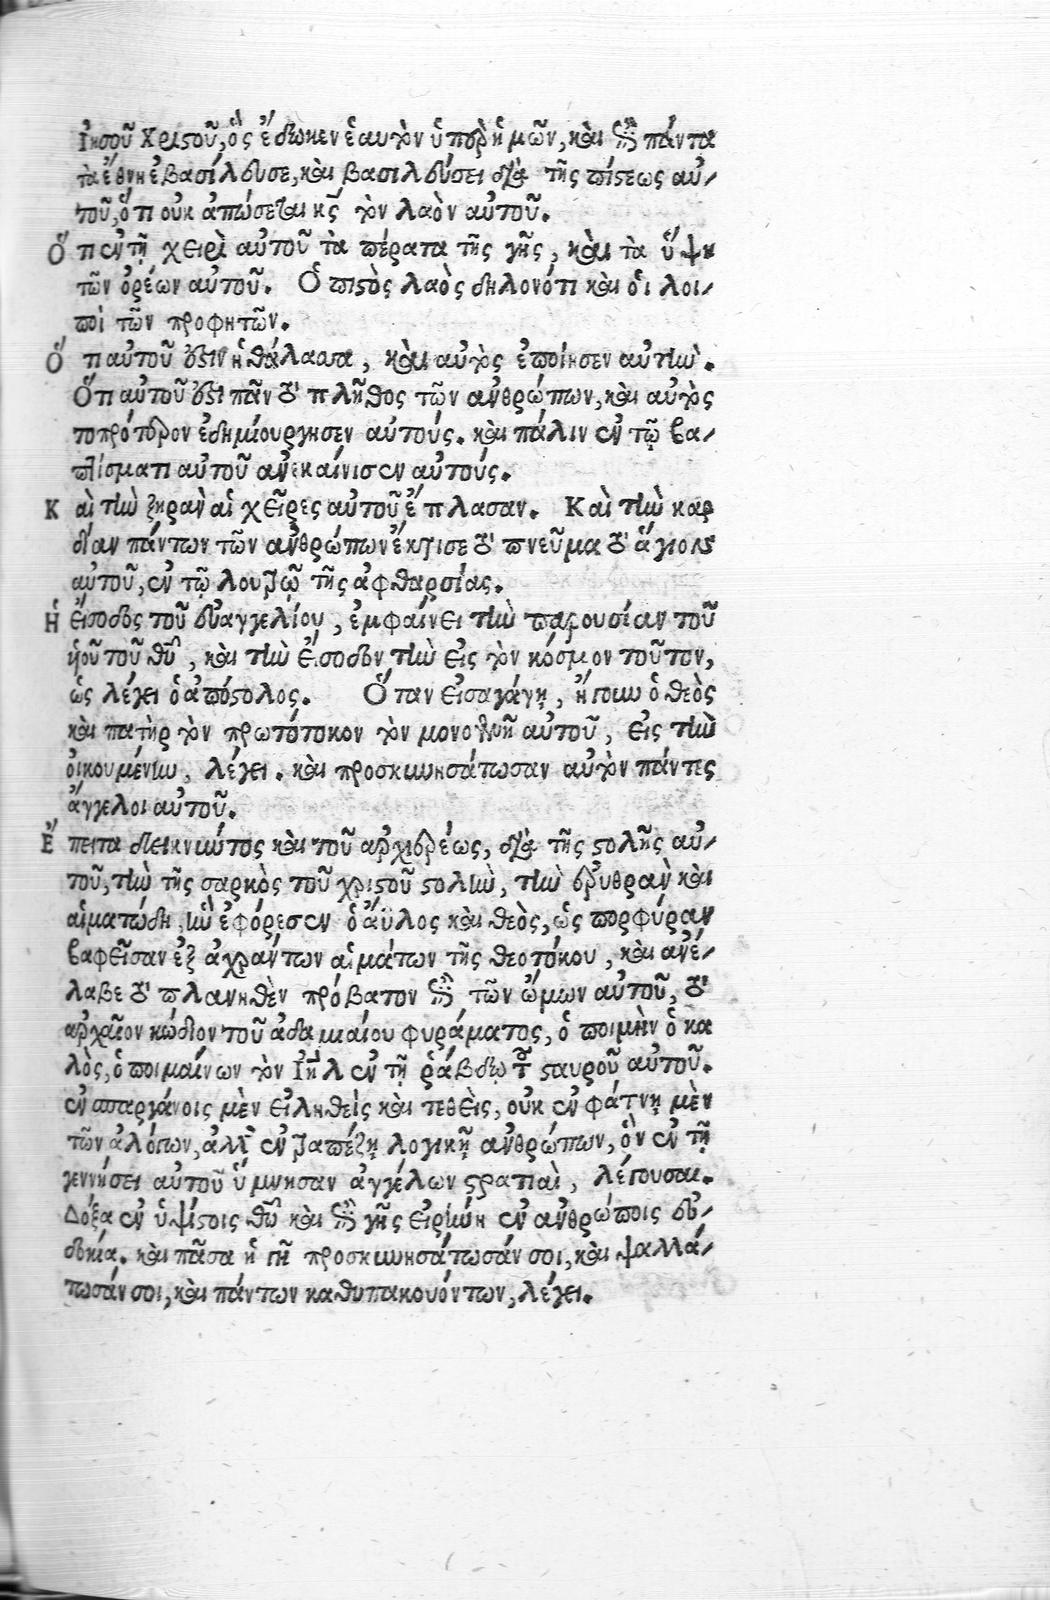 Ἰησοῦ Χριστοῦ, ὃς ἔδωκεν ἑαυτὸν ὑπὲρ ἡμῶν, καὶ ἐπὶ πάντα
τὰ ἔθνη ἐβασίλευσε, καὶ βασιλεύσει διὰ τῆς πίστεως αὐ-
τοῦ, ὅτι οὐκ ἀπώσεται κς τὸν λαὸν αὐτοῦ.
Ὅτι ἐν τῇ χειρὶ αὐτοῦ τὰ πέρατα τῆς γῆς, καὶ τὰ ὕψη
τῶν ὀρέων αὐτοῦ. Ὁ πιστὸς λαὸς δηλονότι καὶ οἱ λοι-
ποὶ τῶν προφητῶν.
Ὅτι αὐτοῦ ἐστιν ἡ θάλασσα, καὶ αὐτὸς ἐποίησεν αὐτήν.
Ὅτι αὐτοῦ ἐστι πᾶν τὸ πλῆθος τῶν ἀνθρώπων, καὶ αὐτὸς
τοπρότερον ἐδημιούργησεν αὐτούς. καὶ πάλιν ἐν τῷ βα-
πτίσματι αὐτοῦ ἀνεκαίνισεν αὐτούς.
Καὶ τὴν ξηρὰν αἱ χεῖρες αὐτοῦ ἔπλασαν. Καὶ τὴν καρ
δίαν πάντων τῶν ἀνθρώπων ἔκτισε τὸ πνεῦμα τὸ ἅγιον
αὐτοῦ, ἐν τῷ λουτρῷ τῆς ἀφθαρσίας.
Ἡ εἴσοδος τοῦ εὐαγγελίου, ἐμφαίνει τὴν παρουσίαν τοῦ
ὑοῦ τοῦ θυ, καὶ τὴν εἴσοδον τὴν εἰς τὸν κόσμον τοῦτον,
ὡς λέγει ὁ ἀπόστολος. Ὅταν εἰσαγάγῃ, ἤγουν ὁ θεὸς
καὶ πατὴρ τὸν πρωτότοκον τὸν μονογενῆ αὐτοῦ, εἰς τὴν
οἰκουμένην, λέγει. καὶ προσκυνησάτωσαν αὐτὸν πάντες
ἄγγελοι αὐτοῦ.
Ἔπειτα δεικνυόντος καὶ τοῦ ἀρχιερέως, διὰ τῆς στολῆς αὐ-
τοῦ, τὴν τῆς σαρκὸς τοῦ χριστοῦ στολὴν, τὴν ἐρυθρὰν καὶ
αἱματώδη, ἣν ἐφόρεσεν ὁ ἄϋλος καὶ θεὸς, ὡς πορφύραν
βαφεῖσαν ἐξ ἀχράντων αἱμάτων τῆς θεοτόκου, καὶ ἀνέ-
λαβε τὸ πλανηθὲν πρόβατον ἐπὶ τῶν ὤμων αὐτοῦ, τὸ
ἀρχαῖον κώδιον τοῦ ἀδαμιαίου φυράματος, ὁ ποιμὴν ὁ κα
λὸς, ὁ ποιμαίνων τὸν Ἰηλ ἐν τῇ ῥάβδῳ τοῦ σταυροῦ αὐτοῦ.
ἐν σπαργάνοις μὲν εἰληθεὶς καὶ τεθεὶς, οὐκ ἐν φάτνῃ μὲν
τῶν ἀλόγων, ἀλλ' ἐν τραπέζῃ λογικῇ ἀνθρώπων, ὃν ἐν τῇ
γεννήσει αὐτοῦ ὕμνησαν ἀγγέλων στρατιαὶ, λέγουσαι.
Δόξα ἐν ὑψίστοις θυ καὶ ἐπὶ γῆς εἰρήνη ἐν ἀνθρώποις εὐ-
δοκία. καὶ πᾶσα ἡ γῆ προσκυνησάτωσάν σοι, καὶ ψαλλά-
τωσάν σοι, καὶ πάντων καθυπακουόντων, λέγει.